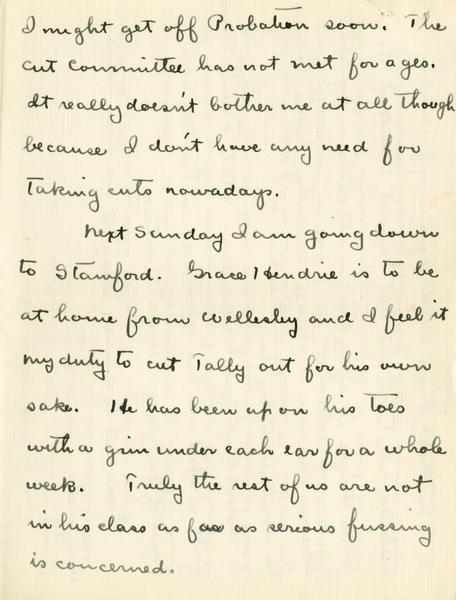 I might get off Probation soon. The
cut committee has not met for ages.
It really doesn't bother me at all though
because I don't have any need for
taking cuts nowadays.
Next Sunday I am going down
to Stamford. Grace Hendrie is to be
at home from Wellesley and I feel it
my duty to cut Tally out for his own
sake. He has been up on his toes
with a grin under each ear for a whole
week. Truly the rest of us are not
in his class as far as serious fussing
is concerned.